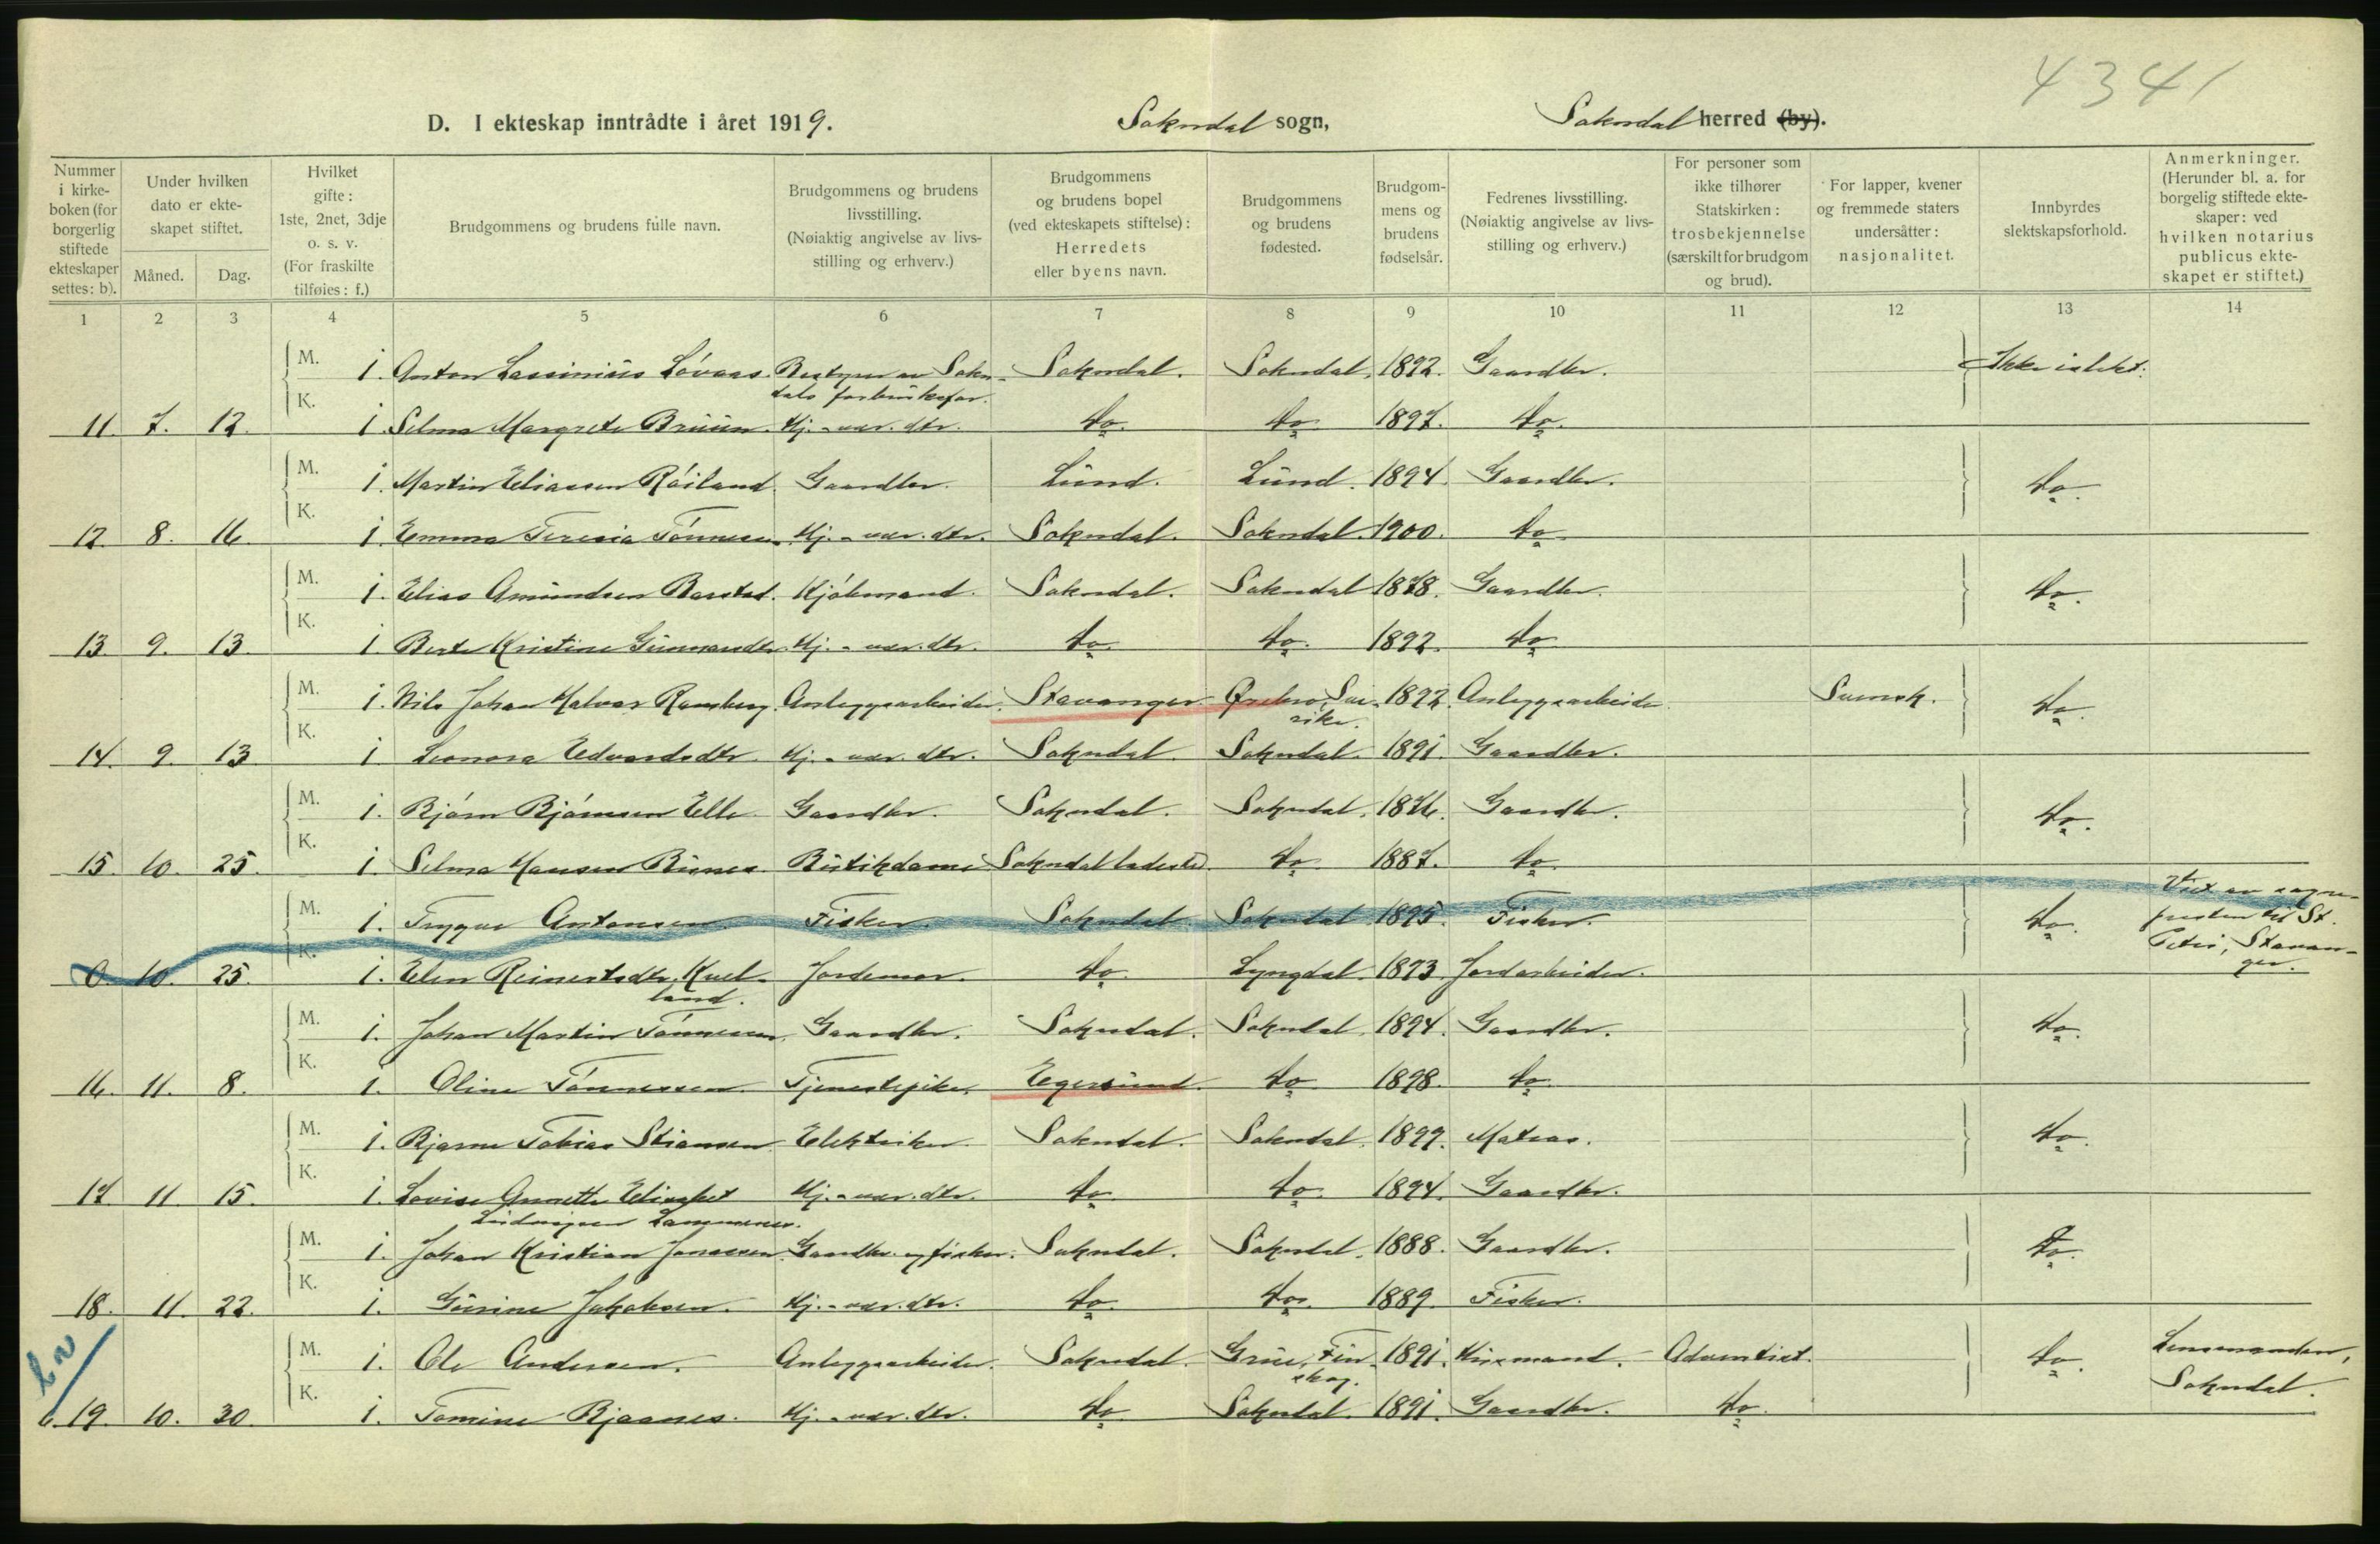 4341
D. I ekteskap inntrådte i året 1919. Sokndal sogn, Sokndal herred (by).
Nummer i kirkeboken (for borgerlig stiftede ekteskaper settes: b).
Under hvilken dato er ekteskapet stiftet.
Måned. Dag.
Hvilket gifte: 1ste, 2net, 3dje o. s. v. (For fraskilte tilføies: f.)
Brudgommens og brudens fulle navn.
Brudgommens og brudens livsstilling. (Nøiaktig angivelse av livsstilling og erhverv.)
Brudgommens og brudens bopel (ved ekteskapets stiftelse): Herredets eller byens navn.
Brudgommens og brudens fødested.
Brudgommens og brudens fødselsår.
Fedrenes livsstilling. (Nøiaktig angivelse av livsstilling og erhverv.)
For personer som ikke tilhører Statskirken: trosbekjennelse (særskilt for brudgom og brud).
For lapper, kvener og fremmede staters undersåtter: nasjonalitet.
Innbyrdes slektskapsforhold.
Anmerkninger. (Herunder bl. a. for borgelig stiftede ekteskaper: ved hvilken notarius publicus ekteskapet er stiftet.)
1 2 3 4 5 6 7 8 9 10 11 12 13 14
M. 1. Anton Lassinius Lóvaas. Bestyrer av Sokndals forbruksfor. Sokndal. Sokndal. 1892. Gaardbr. Ikke i slekt.
11. 7. 12. K. 1. Selma Margrete Bruun. Hj.-vær. dtr. do. do. 1897. do.
M. 1. Martin Eliassen Róiland. Gaardbr. Lund. Lund. 1894. Gaardbr. do.
12. 8. 16. K. 1. Emma Teresia Tónnessen. Hj.-vær. dtr. Sokndal. Sokndal. 1900. do.
M. 1. Elias Amundsen Barstad. Kjóbmand. Sokndal. Sokndal 1878. Gaardbr. do.
13. 9. 13. K. 1. Berte Kristine Gunnarsdtr. Hj.-vær. dtr. do. do. 1892. do.
M. 1. Nils Johan Halvar Ramberg. Anleggsarbeider. Stavanger. Ørebro, Sverike. 1892. Anleggsarbeider. Svensk. do.
14. 9. 13. K. 1. Leonora Edvardsdtr. Hj.-vær. dtr. Sokndal. Sokndal. 1891. Gaardbr.
M. 1. Bjórn Bjórnsen Elle. Gaardbr. Sokndal. Sokndal. 1876. Gaardbr. do.
15. 10. 25. K. 1. Selma Hansen Bisnes. Butikdame Sokndal ladested. do. 1887. do.
M. 1. Trygve Antonsen. Fisker. Sokndal. Sokndal 1895. Fisker. do. Viet av sogne-
presten til St.
Petri, Stavan-
ger.
0. 10. 25. K. 1. Elen Reinertsdtr. Kvelland. Jordemor. do. Lyngdal. 1893. Jordarbeider.
M. 1. Johan Martin Tónnessen. Gaardbr. Sokndal. Sokndal. 1894. Gaardbr. do.
16. 11. 8. K. 1. Oline Tónnessen. Tjenestepike. Egersund. do. 1898. do.
M. 1. Bjarne Tobias Stiansen. Elektriker. Sokndal. Sokndal. 1899. Matros. do.
17. 11. 15. K. 1. Lovise Annette Elisabet Hj.-vær. dtr. do. do. 1894. Gaardbr.
M. 1. Johan Kristian Jonassen. Gaardbr. og fisker. Sokndal. Sokndal. 1888. Gaardbr. do.
18. 11. 22. K. 1. Gurine Jakobsen. Hj.-vær. dtr. do. do. 1889. Fisker.
M. 1. Ole Andersen. Anleggsarbeider. Sokndal. Grue, Finskog. 1891. Husmand. Adventist. do. Lensmanden,
Sokndal.
b. 19. 10. 30. K. 1. Tomine Bjaanes. Hj.-vær. dtr. do. Sokndal. 1891. Gaardbr. do.